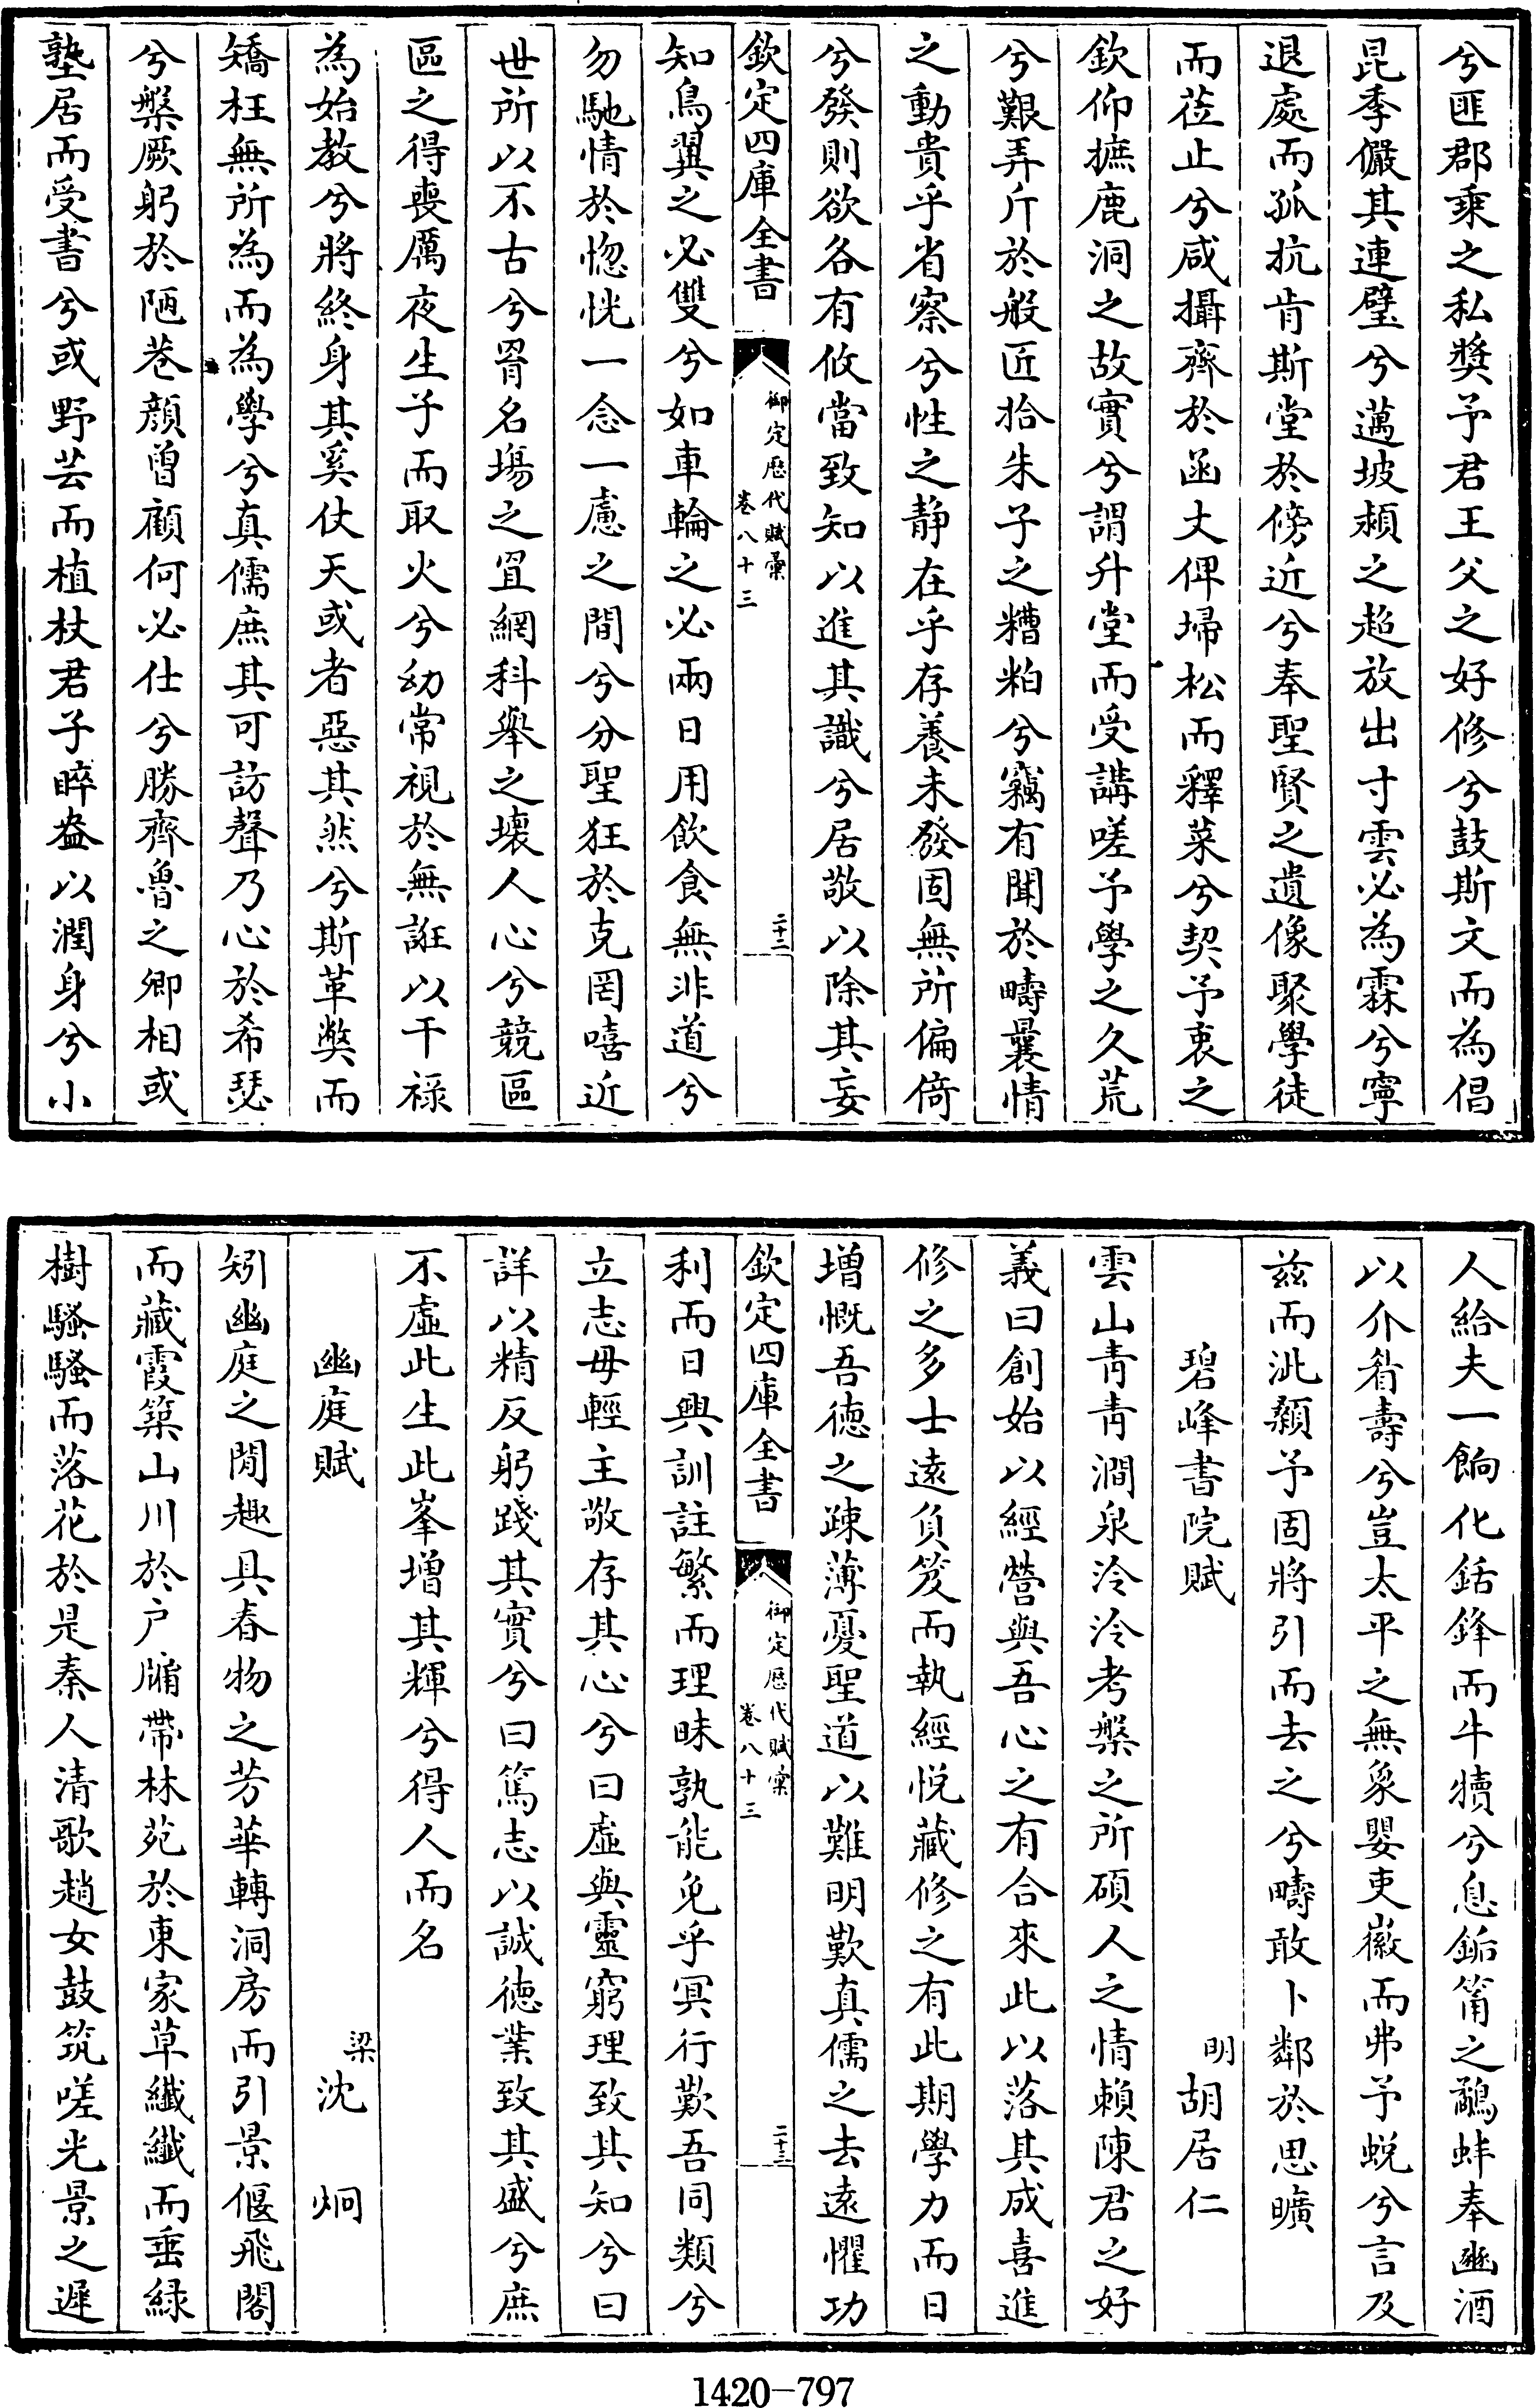 兮匪郡乘之私奬予君王父之好修兮鼓斯文而為倡
昆季儼其連璧兮邁坡潁之超放出寸雲必為霖兮寧
退處而孤抗肯斯堂於傍近兮奉聖賢之遺像聚學徒
而莅止兮咸攝齊於函丈俾埽松而釋菜兮契予衷之
欽仰摭鹿洞之故實兮謂升堂而受講嗟予學之久荒
兮艱弄斤於般匠拾朱子之糟粕兮竊有聞於疇曩情
之動貴乎省察兮性之静在乎存養未發固無所偏倚
兮發則欲各有攸當致知以進其識兮居敬以除其妄
欽定四庫全書
御定歷代賦彙
卷八十三
二十二
知鳥翼之必雙兮如車輪之必兩日用飲食無非道兮
勿馳情於惚恍一念一慮之間兮分聖狂於克罔嘻近
世所以不古兮罥名塲之罝網科舉之壞人心兮競區
區之得喪厲夜生子而取火兮幼常視於無誑以干禄
為始教兮將終身其奚仗天或者惡其然兮斯革獘而
矯枉無所為而為學兮真儒庶其可訪聲乃心於希瑟
兮槃厥躬於陋巷顔曾顧何必仕兮勝齊魯之卿相或
塾居而受書兮或野芸而植杖君子睟盎以潤身兮小
人給夫一餉化銛鋒而牛犢兮息鉐筩之鷸蚌奉豳酒
以介眉壽兮豈太平之無象嬰吏徽而弗予蜕兮言及
兹而泚顙予固將引而去之兮疇敢卜鄰於思曠
碧峰書院賦
明胡居仁
雲山青青澗泉泠泠考槃之所碩人之情賴陳君之好
義曰創始以經營與吾心之有合來此以落其成喜進
修之多士遠負笈而執經悦藏修之有此期學力而日
增慨吾徳之踈薄憂聖道以難明歎真儒之去遠懼功
欽定四庫全書
御定歷代賦彙
卷八十三
二十三
利而日興訓註繁而理昧孰能免乎冥行歎吾同類兮
立志毋輕主敬存其心兮曰虚與靈窮理致其知兮曰
詳以精反躬踐其實兮曰篤志以誠徳業致其盛兮庶
不虚此生此峯增其輝兮得人而名
幽庭賦
梁沈烱
矧幽庭之閒趣具春物之芳華轉洞房而引景偃飛閣
而藏霞築山川於户牖帶林苑於東家草纎纎而垂緑
樹騷騷而落花於是秦人清歌趙女鼓筑嗟光景之遲
1420-797